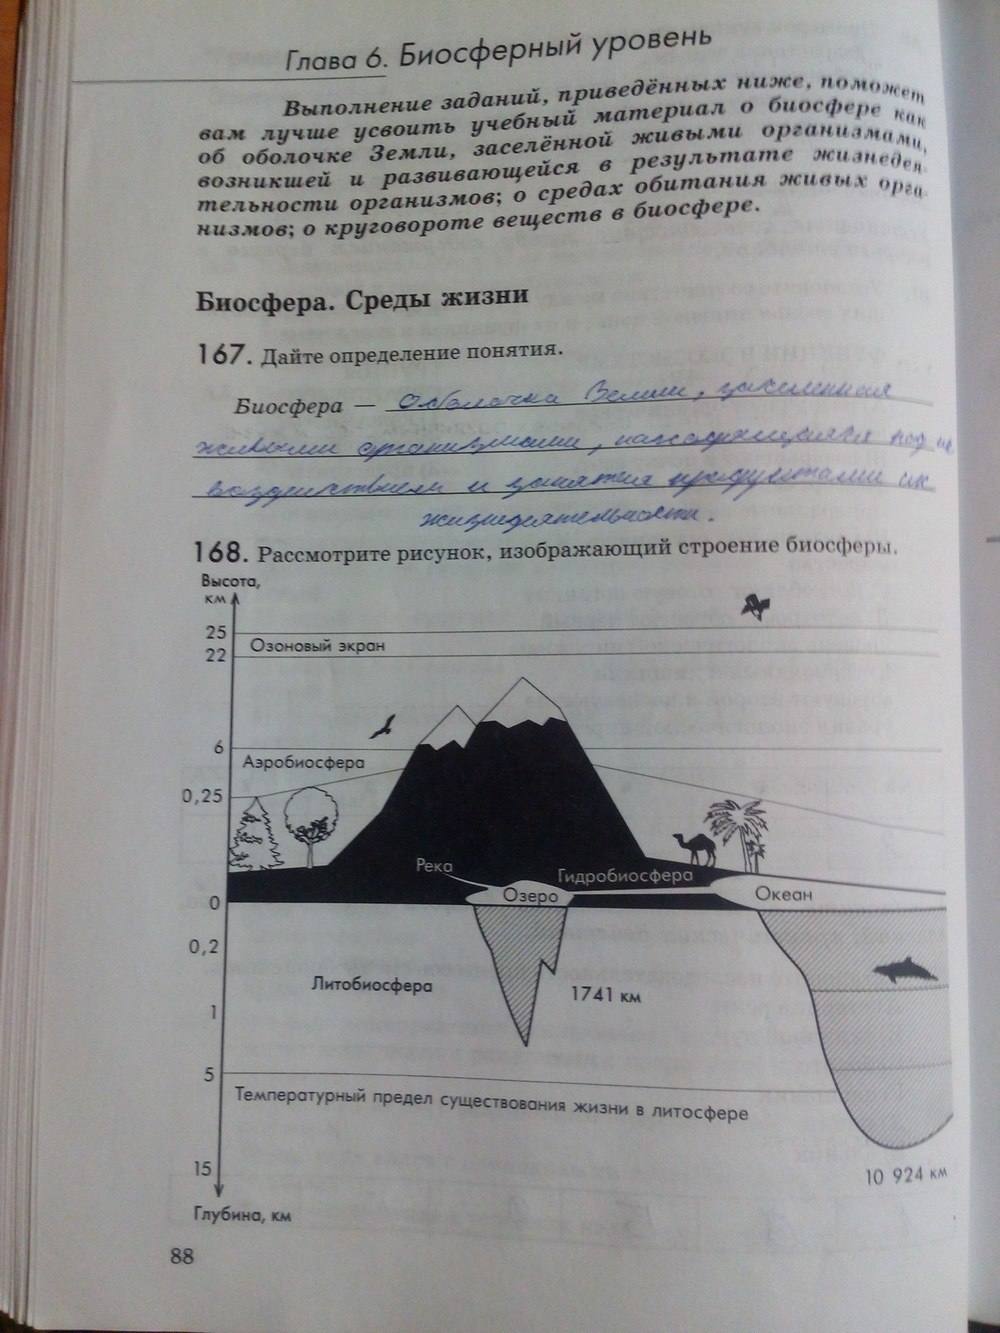 Глава 6. Биосферный уровень
Выполнение заданий, приведённых ниже, поможет
вам лучше усвоить учебный материал о биосфере как
об оболочке Земли, заселённой живыми организмами,
возникшей и развивающейся в результате жизнедея-
тельности организмов; о средах обитания живых орга-
низмов; о круговороте веществ в биосфере.
Биосфера. Среды жизни
167. Дайте определение понятия.
Биосфера — Оболочка Земли, заселенная
живыми организмами, находящаяся под их
воздействием и занятая продуктами их
жизнедеятельности.
168. Рассмотрите рисунок, изображающий строение биосферы.
Высота,
км
25
Озоновый экран
22
6
Аэробиосфера
0,25
Река
Гидробиосфера
0
Озеро
Океан
0,2
Литобиосфера
1741 км
1
5
Температурный предел существования жизни в литосфере
15
10 924 км
Глубина, км
88